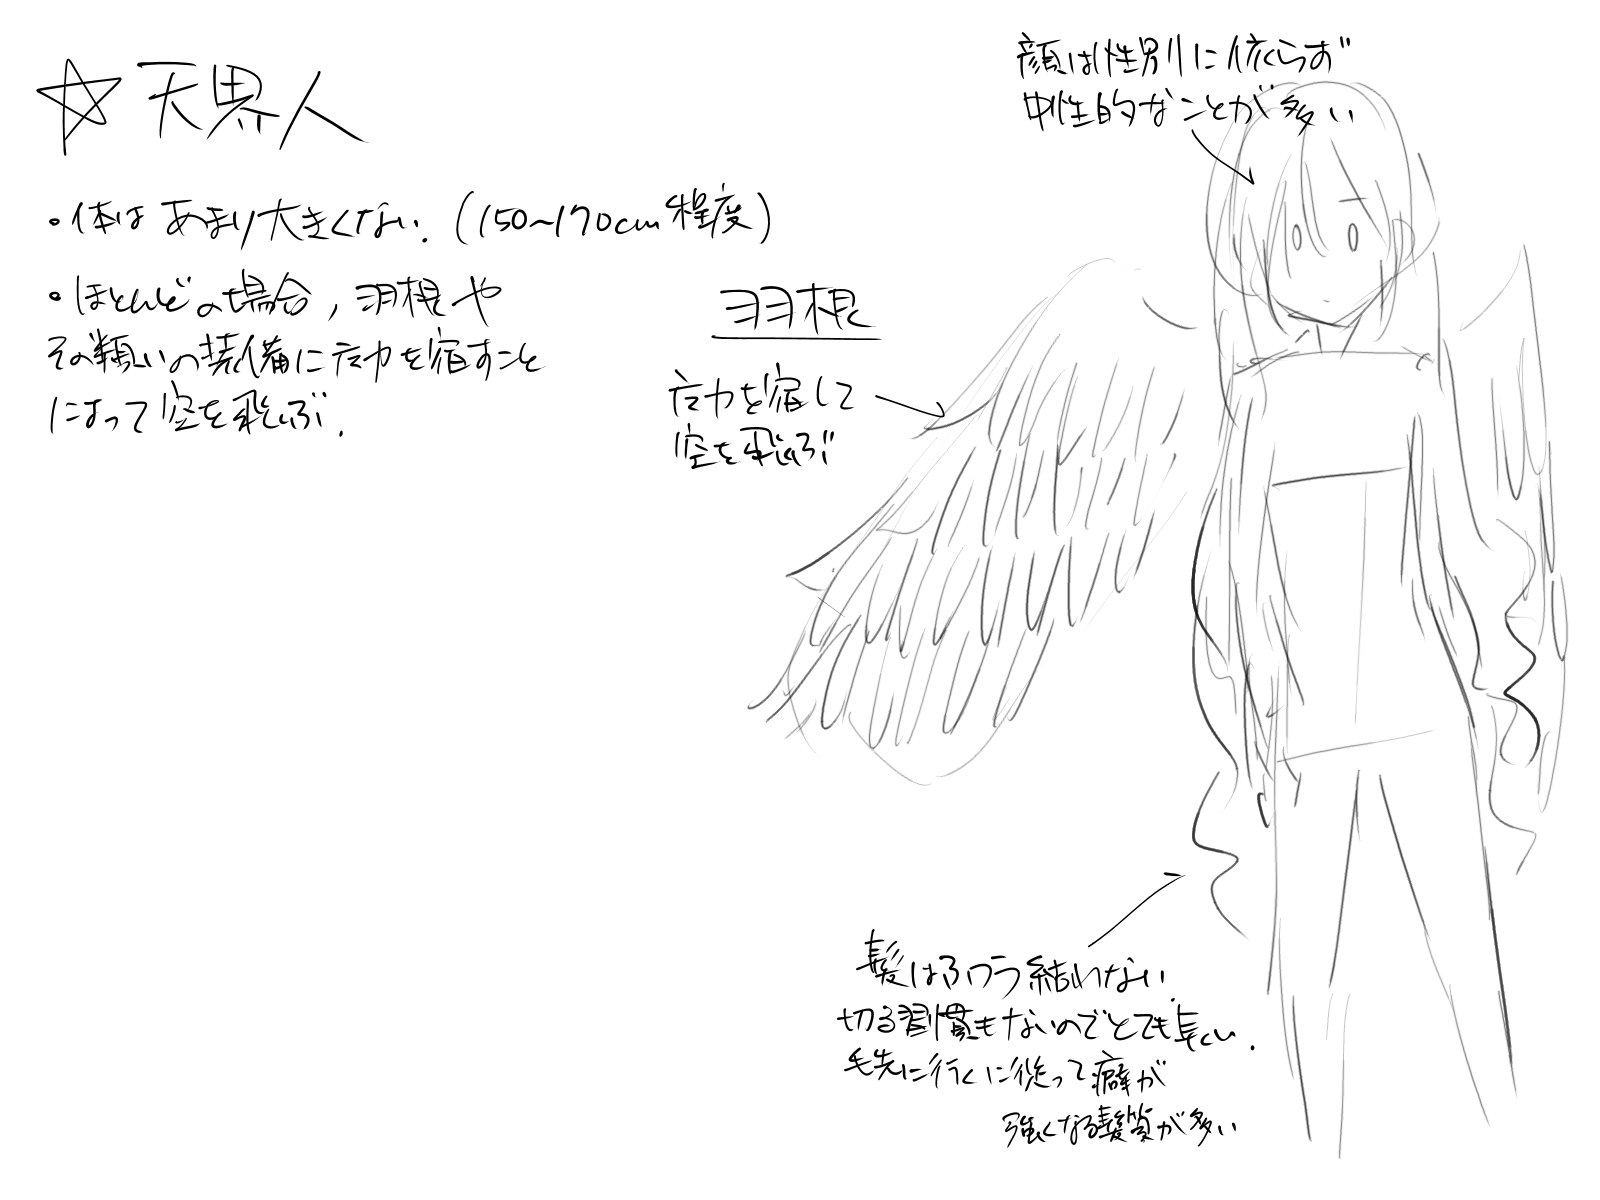 ☆天界人
・体はあまり大きくない.(150~170cm程度)
・ほとんどの場合,羽根や
その類いの装備に力を宿すこと
によって空を飛ぶ.
羽根
力を宿して
空を飛ぶ
顔は性別に依らず
中性的なことが多い
髪はふつう結わない.
切る習慣もないのでとても長い.
毛先に行くに従って癖が
強くなる髪質が多い